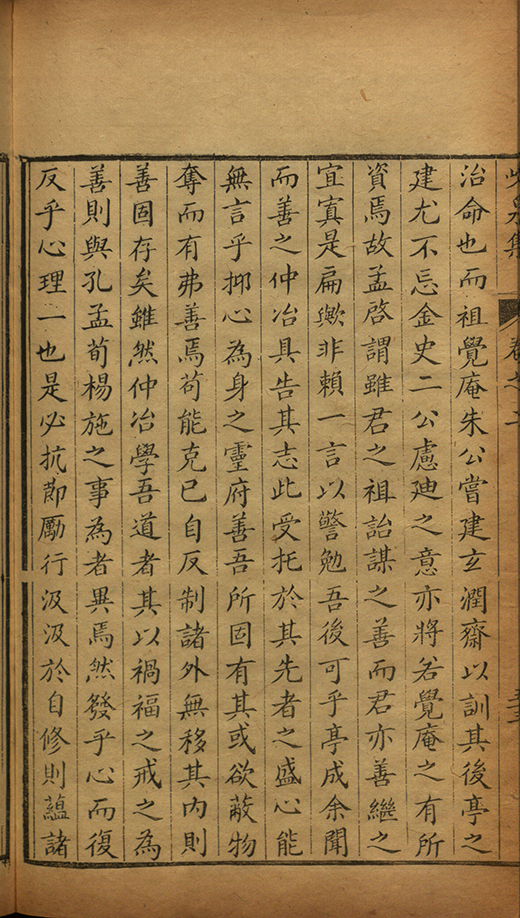 泉集 卷之
治命也而祖覺庵朱公嘗建玄潤齋以訓其後亭之
建尤不忘金史二公慮廸之意亦將若覺庵之有所
資焉故孟啓謂雖君之祖詒謀之善而君亦善繼之
宜寘是扁歟非賴一言以警勉吾後可乎亭成余聞
而善之仲冶具告其志此受托於其先者之盛心能
無言乎抑心為身之靈府善吾所固有其或欲蔽物
奪而有弗善焉苟能克已自反制諸外無移其內則
善固存矣雖然仲冶學吾道者其以禍福之戒之為
善則與孔孟荀楊施之事為者異焉然發乎心而復
反乎心理一也是必抗節勵行汲汲於自修則蘊諸